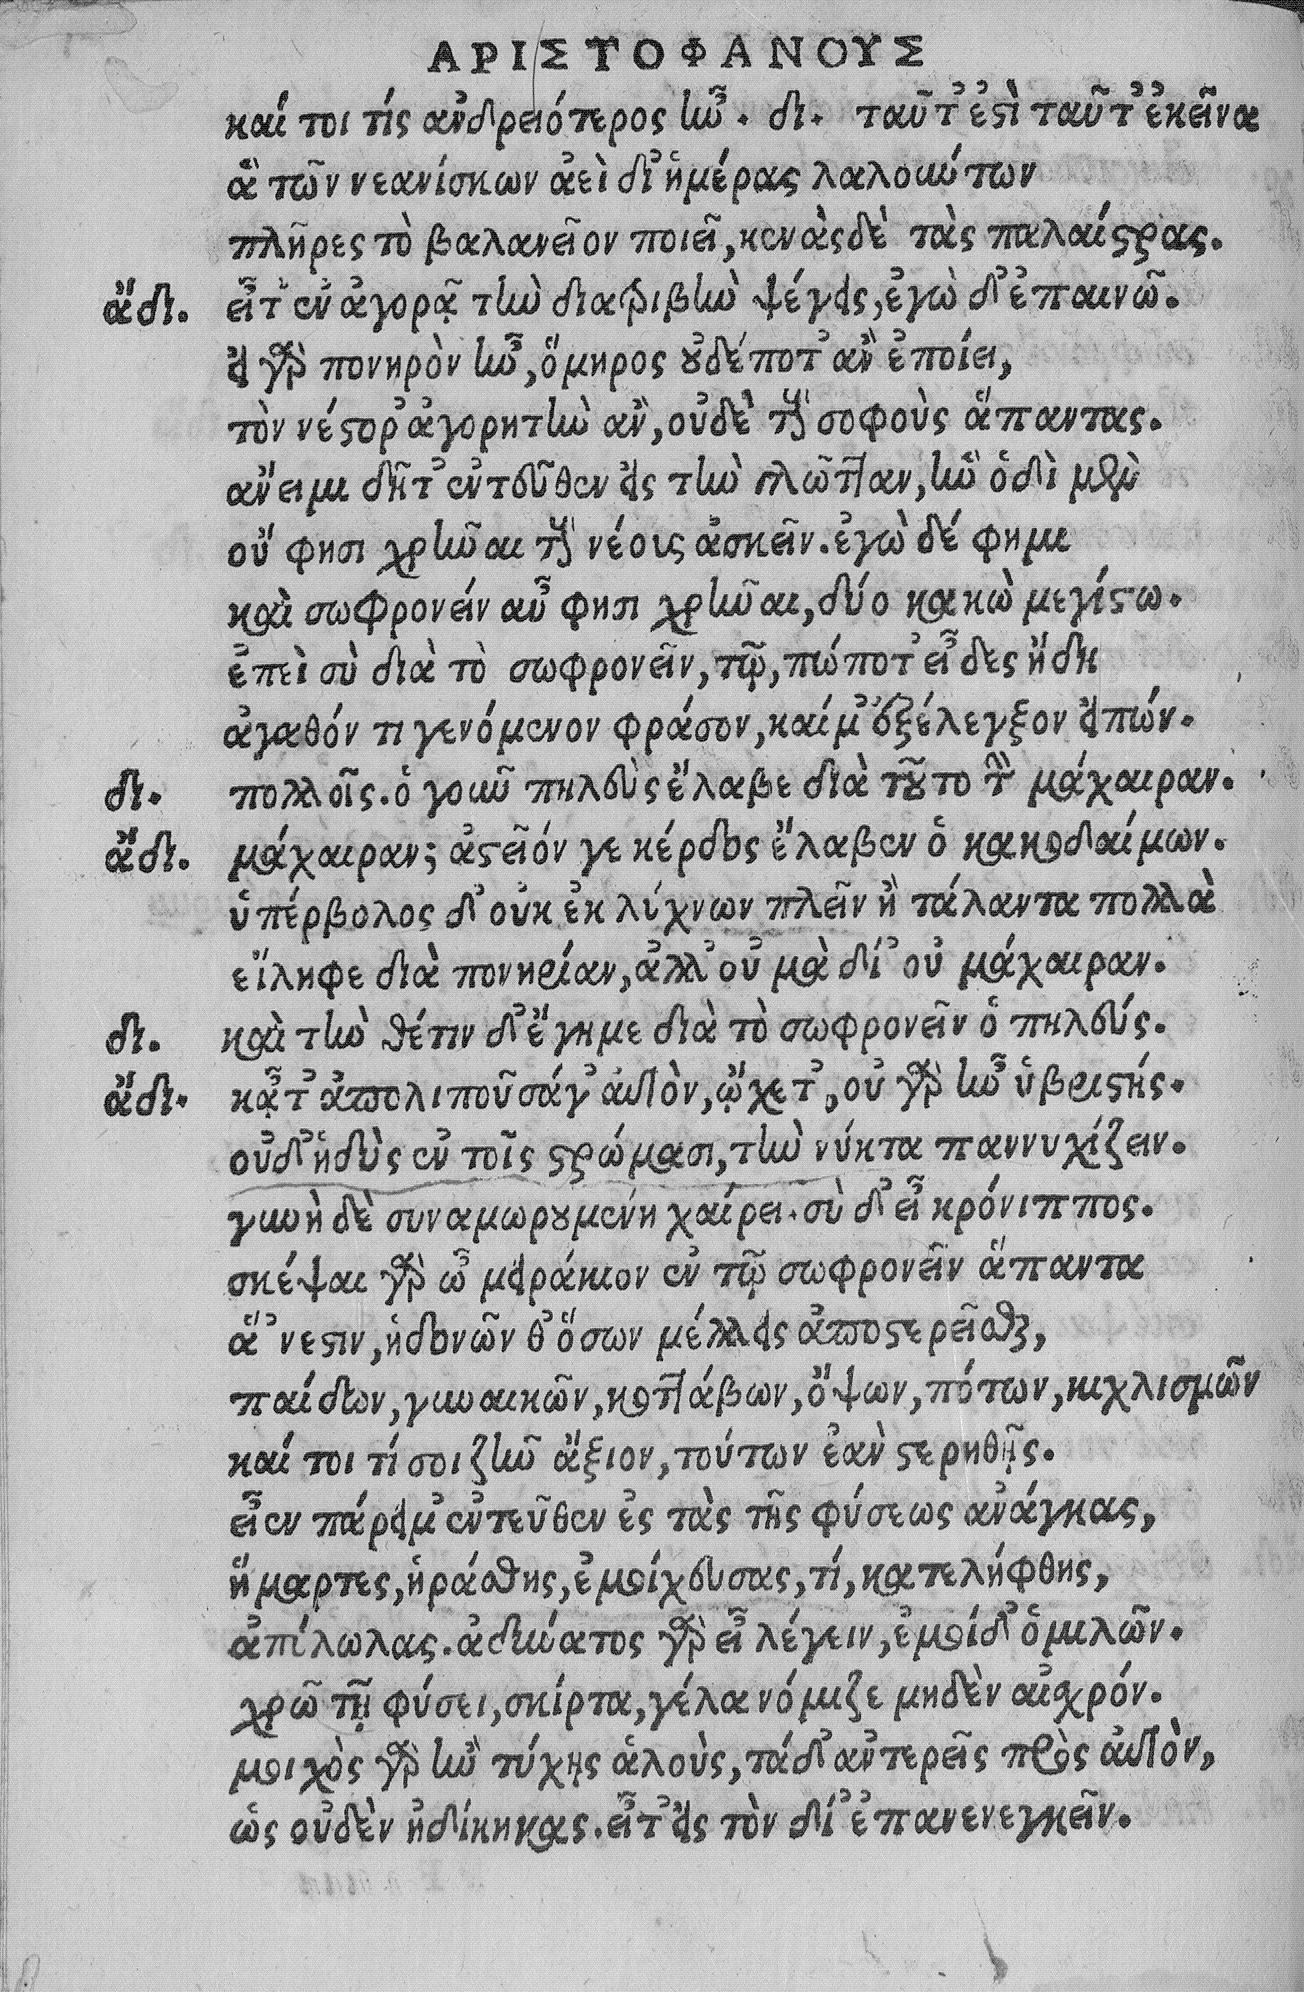 ΑΡΙΣΤΟΦΑΝΟΥΣ
καί τοι τίς ἀνδρειότερος ἦν. δι. ταῦτ᾽ ἐστὶ ταῦτ᾽ ἐκεῖνα
ἃ τῶν νεανίσκων ἀεὶ δι᾽ ἡμέρας λαλούντων
πλῆρες τὸ βαλανεῖον ποιεῖ, κενὰς δὲ τὰς παλαίστρας.
ἄδι. εἶτ᾽ ἐν ἀγορᾷ τὴν διατριβὴν ψέγεις, ἐγὼ δ᾽ ἐπαινῶ.
εἰ γὰρ πονηρὸν ἦν, ὅμηρος οὐδέποτ᾽ ἂν ἐποίει,
τὸν νέστορ᾽ ἀγορητὴν ἂν, οὐδὲ τοὺς σοφοὺς ἅπαντας.
ἄνειμι δῆτ᾽ ἐντεῦθεν εἰς τὴν γλῶτταν, ἣν ὁδὶ μὲν
οὔ φησι χρῆναι τοὺς νέους ἀσκεῖν. ἐγὼ δέ φημι
καὶ σωφρονείν αὖ φησι χρῆναι, δύο κακὼ μεγίστω.
ἐπεὶ σὺ διὰ τὸ σωφρονεῖν, τῷ, πώποτ᾽ εἶδες ἤδη
ἀγαθόν τι γενόμενον φράσον, καί μ᾽ ἐξέλεγξον εἰπών.
δι. πολλοῖς. ὁ γοῦν πηλεὺς ἔλαβε διὰ τοῦτο τὴν μάχαιραν.
ἄδι. μάχαιραν; ἀστεῖόν γε κέρδος ἔλαβεν ὁ κακοδαίμων.
ὑπέρβολος δ᾽ οὐκ ἐκ λύχνων πλεῖν ἢ τάλαντα πολλὰ
εἴληφε διὰ πονηρίαν, ἀλλ᾽ οὐ μὰ δί᾽ οὐ μάχαιραν.
δι. καὶ τὴν θέτιν δ᾽ ἔγημε διὰ τὸ σωφρονεῖν ὁ πηλεύς.
ἄδι. κᾆτ᾽ ἀπολιποῦσά γ᾽ αὐτὸν, ᾤχετ᾽, οὐ γὰρ ἦν ὑβριστής.
οὐδ᾽ ἡδὺς ἐν τοῖς στρώμασι, τὴν νύκτα παννυχίζειν.
γυνὴ δὲ συναμωρουμένη χαίρει. σὺ δ᾽ εἶ κρόνιππος.
σκέψαι γὰρ ὦ μειράκιον ἐν τῷ σωφρονεῖν ἅπαντα
ἅ ᾽νεστιν, ἡδονῶν θ᾽ ὅσων μέλλεις ἀποστερεῖσθαι,
παίδων, γυναικῶν, κοττάβων, ὄψων, πότων, κιχλισμῶν
καί τοι τί σοι ζῆν ἄξιον, τούτων ἐὰν στερηθῇς.
εἶεν πάρειμ᾽ ἐντεῦθεν ἐς τὰς τῆς φύσεως ἀνάγκας,
ἥμαρτες, ἠράσθης, ἐμοίχευσας, τί, κατελήφθης,
ἀπόλωλας. ἀδύνατος γὰρ εἶ λέγειν, ἐμοί δ᾽ ὁμιλῶν.
χρῶ τῇ φύσει, σκίρτα, γέλα νόμιζε μηδὲν αἰσχρόν.
μοιχὸς γὰρ ἢν τύχῃς ἁλοὺς, τάδ᾽ ἀντερεῖς πρὸς αὐτὸν,
ὡς οὐδὲν ἠδίκηκας. εἶτ᾽ εἰς τὸν δί᾽ ἐπανενεγκεῖν.